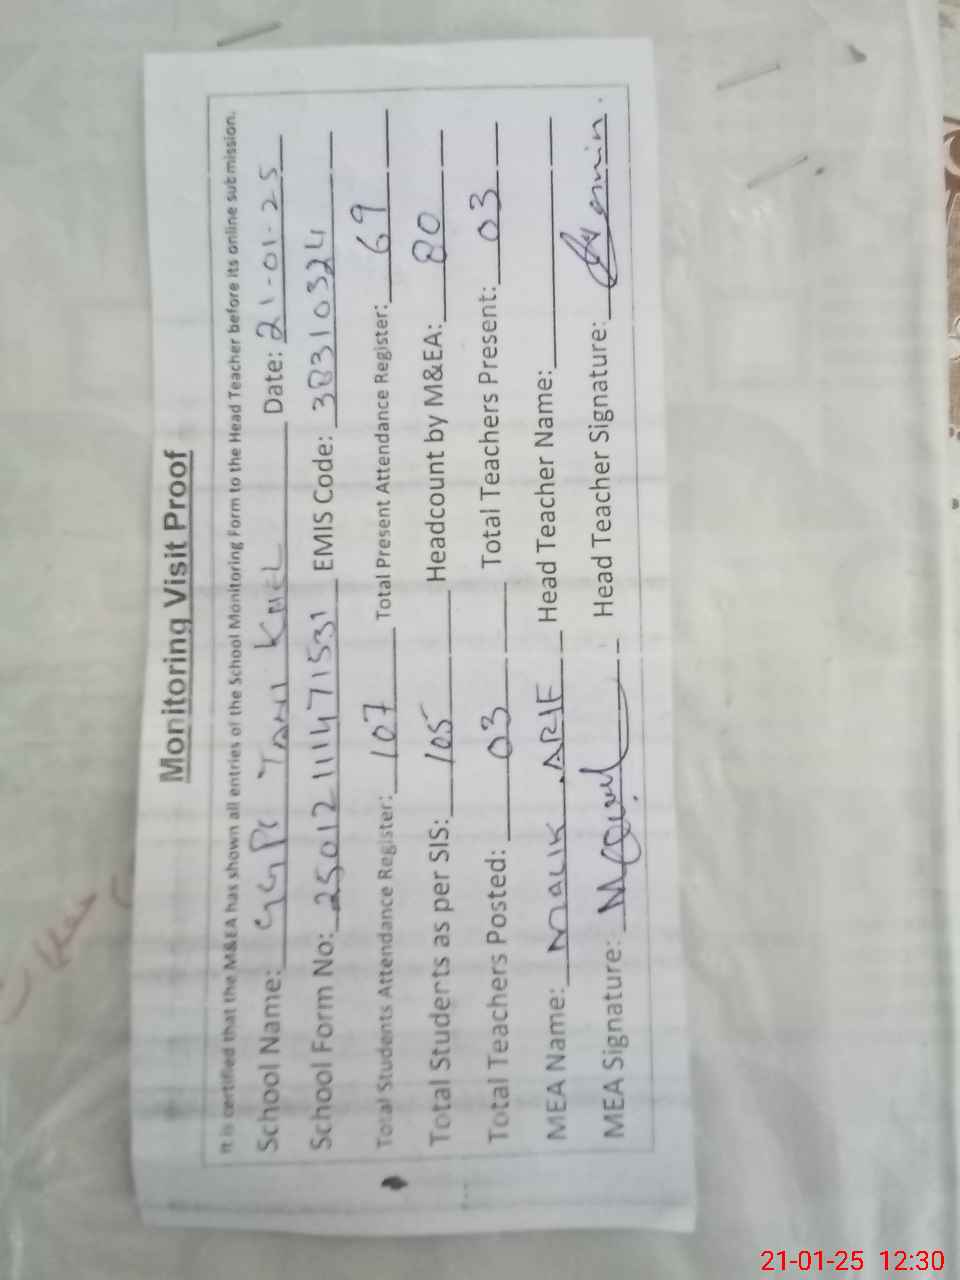 Monitoring Visit Proof
It is certified that the M&EA has shown all entries of the School Monitoring Form to the Head Teacher before its online submission.
School Name: GGPS Date: 21-01-25
School Form No: 25012111471531 EMIS Code: 38310324
Total Students Attendance Register: 107 Total Present Attendance Register: 69
Total Students as per SIS: 105 Headcount by M&EA: 80
Total Teachers Posted: 03 Total Teachers Present: 03
MEA Name: MALIK ARIF Head Teacher Name:
MEA Signature: Head Teacher Signature:
21-01-25 12:30